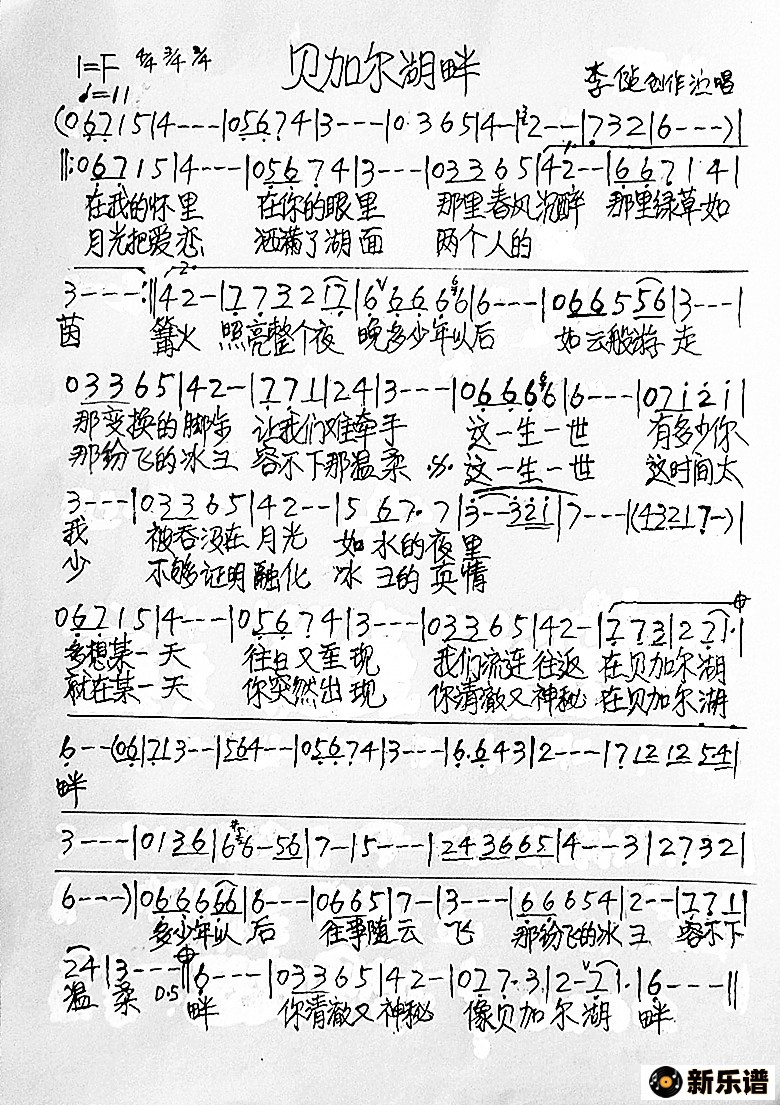 1=F 4/4 3/4 2/4
贝加尔湖畔
李健创作演唱
(067 1 5|4---|05674|3---|0 3 6 5|4-|2--|7 3 2|6---)|
‖:067 1 5|4---|05674|3---|03365|42--|66714|
在我的怀里 在你的眼里 那里春风沉醉 那里绿草如
月光把爱恋 洒满了湖面 两个人的
3---:‖42-|773217|6 6 6 6 6|6---|0665 56|3---|
茵 篝火 照亮整个夜 晚多少年以后 如云般游走
03365|42-|771|24|3---|0666 6|6---|07 1 2 1|
那变换的脚步 让我们难牵手 这一生一世 有多少你
那纷飞的冰王 容不下那温柔 这一生一世 这时间太
3---|03365|42--|5 67· 7|3--321|7---|(43217-)|
我 被吞没在月光 如水的夜里
少 不够证明融化 冰王的真情
067 1 5|4---|05674|3---|03365|42-|773|271·|
多想某一天 往日又重现 我们流连往返 在贝加尔湖
就在某一天 你突然出现 你清澈又神秘 在贝加尔湖
6---(06|713--|564--|05674|3---|6·643|2---|712 12 5·4|
畔
3---|0136|66-56|7-|5---|24 3665|4--3|2732|
6---)|0666 66|6---|0665|7-|3---|66654|2--|771|
多少年以后 往事随云飞 那纷飞的冰王 容不下
24|3---‖6---|03365|42-|027·3|2-21·|6---‖
温柔 D.S 畔 你清澈又神秘 像贝加尔湖畔
新乐谱